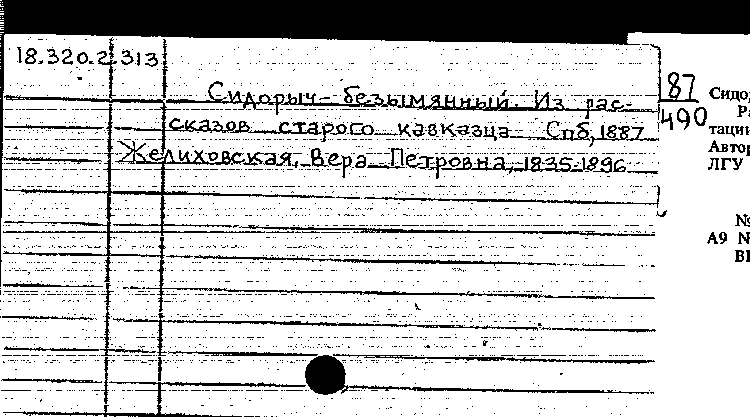 18.320.2.313
Сидорыч - безымянный. Из рас-
сказов старого кавказца Спб, 1887
Желиховская, Вера Петровна, 1835-1896
87
490
Сидо
Ра
тации
Автор
ЛГУ
№
А9 №